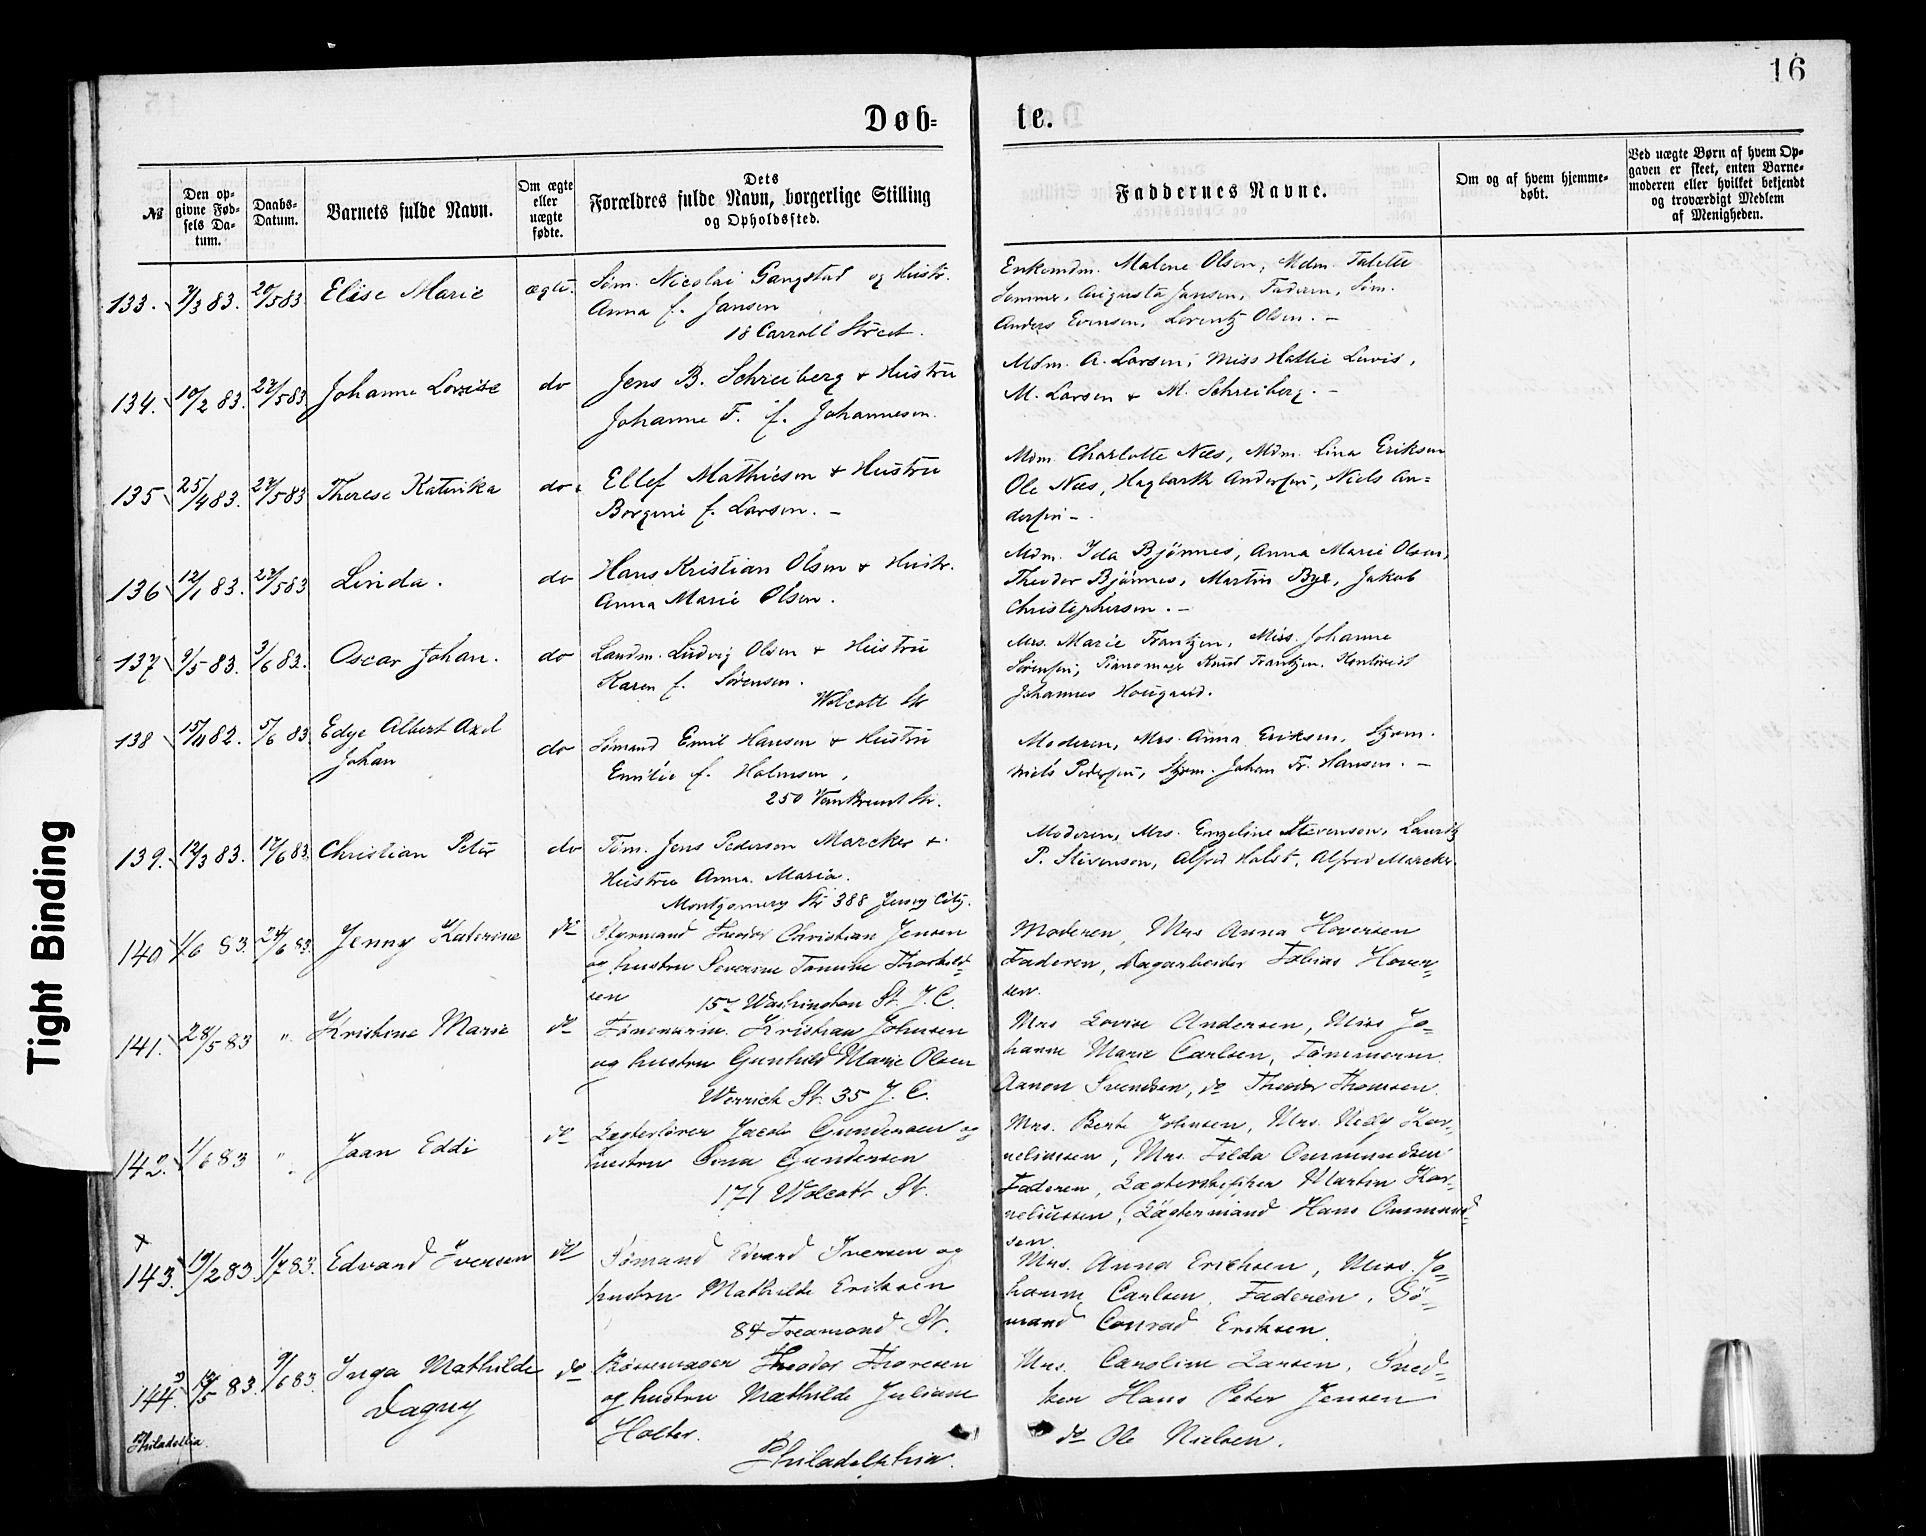 16
Døb= te.
№
Den op-
givne Fød-
sels Da-
tum.
Daabs-
Datum.
Barnets fulde Navn.
Om ægte
eller
uægte
fødte.
Dets
Forældres fulde Navn, borgerlige Stilling
og Opholdssted.
Faddernes Navne.
Om og af hvem hjemme-
døbt.
Ved uægte Børn af hvem Op-
gaven er skeet, enten Barne-
moderen eller hvilket bekjendt
og troværdigt Medlem
af Menigheden.
133. 7/3 83. 20/5 83 Elise Marie ægte. Søm. Nicolai Gangstad og Hustr.
Anna f. Jansen
18 Carroll Street.
Enkemdm. Malene Olsen, Mdm. Talette
Sommer, Augusta Jansen, Faderen, Søm.
Anders Evensen, Lorentz Olsen. -
134. 10/2 83. 27/5 83 Johanne Lovise do Jens B. Schreiberg + Hustru
Johanne F. f. Johannesen.
Mdm. A. Larsen, Miss Hattie Lewis,
M. Larsen + M. Schreiberg. -
135 25/4 83. 27/5 83 Therese Katinka do. Ellef Mathiesen + Hustru
Borgine f. Larsen. -
Mdm. Charlotte Næs, Mdm. Lina Eriksen
Ole Næs, Hagbarth Andersen, Niels An=
dersen -
136 12/1 83. 27/5 83 Linda. do Hans Kristian Olsen + Hustr.
Anna Marie Olsen.
Mdm. Ida Bjønnes, Anna Marie Olsen,
Theodor Bjønnes, Martin Bye, Jakob
Christophersen. -
137 9/5 83. 3/6 83. Oscar Johan. do Landm. Ludvig Olsen + Hustru
Karen f. Sørensen.
Wolcott Str
Mrs. Marie Frantzen, Miss. Johanne
Sørensen, Pianomager Knud Frantzen. Kontorist
Johannes Hougaard.
138 15/11 82. 5/6 83. Edye Albert Axel
Johan
do Sømand Emil Hansen + Hustru
Emilie f. Holmsen,
250 VanBrunt Str.
Moderen, Mrs. Anna Eriksen, Styrm.
Niels Pedersen, Styrm. Johan Fr. Hansen. -
139. 12/3 83. 17/6 83. Christian Peter do Tøm. Jens Pedersen Marcker +
Hustru Anna Maria.
Montgomery Str 388 Jersey City.
Moderen, Mrs. Engeline Stevenson, Lauritz
P. Stevenson, Alfred Holst, Alfred Marcker.
140 1/6 83. 24/6 83. Jenny Katerine do Styrmand Theodor Christian Jensen
og hustru Severine Tomine Thorkild=
sen 157 Washington St. J. C.
Moderen, Mrs Anna Hoversen
Faderen, Dagarbeider Tobias Hover=
sen.
141. 28/5 83 " Kristine Marie do Tømmerm. Kristian Johnsen
og hustru Gunhild Marie Olsen
Werrick St. 35 J. C.
Mrs Lovise Andersen, Miss Jo=
hanne Marie Carlsen, Tømmerm.
Aanon Svendsen, do Theodor Thomsen.
142. 1/6 83 " Jaan Eddi do Lægterfører Jacob Gundersen og
hustru Gundersen
171 Wolcott St.
Mrs. Berte Johnsen, Mrs. Nelly Kor=
neliussen, Mrs. Tilda Ommundsen
Faderen, Lægterskipper Martin Kor=
neliussen, Lægtermand Hans Ommund=
sen.
x
143. 19/2 83 1/7 83. Edvard Iversen do Sømand Edvard Iversen og
hustru Mathilde Eriksen
84 Treamond St.
Mrs. Anna Erichsen, Miss. Jo=
hanne Carlsen, Faderen, Sø=
mand Conrad Eriksen.
144. 12/5 83. 9/6 83. Inga Mathilde
Dagny
do Bøssemager Theodor Thoresen
og hustru Mathilde Juliane
Holter.
Philadelphia.
Mrs. Caroline Larsen, Sned=
ker Hans Peter Jensen
do Ole Nielsen.
Philadelfia.
Tight Binding